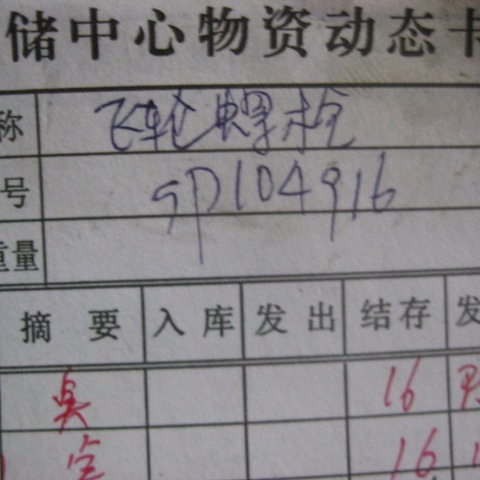 储中心物资动态卡
称 飞轮螺栓
号 SP104916
重量
摘 要 入 库 发 出 结 存 发
吴 16
16